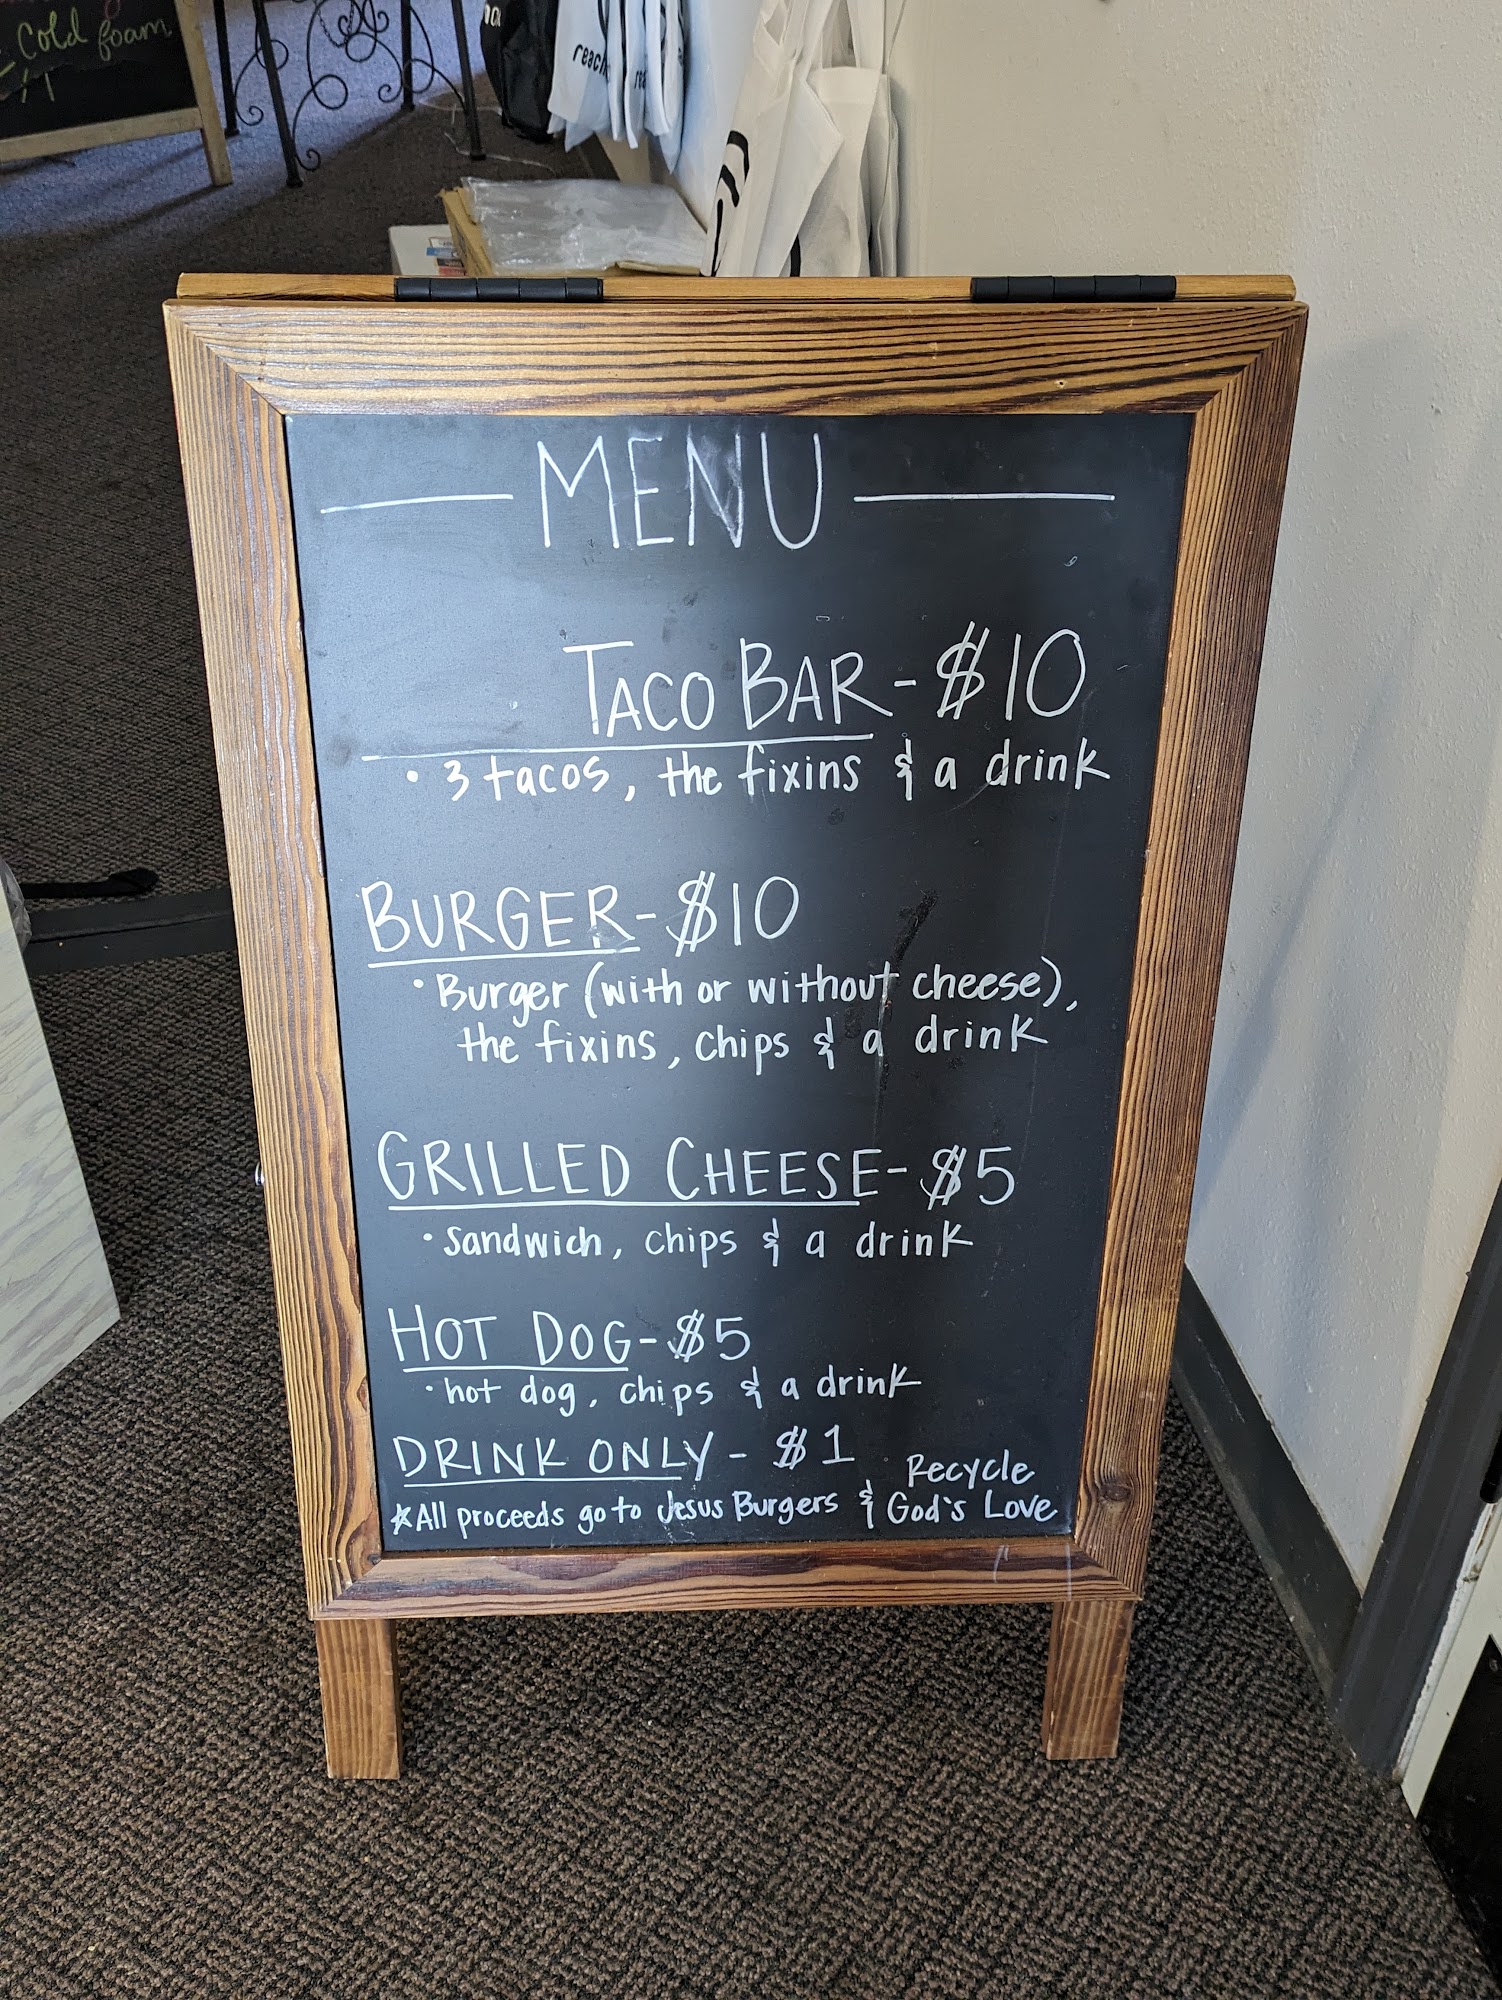 Cold foam
reach
MENU
TACO BAR - $10
• 3 tacos, the fixins & a drink
BURGER - $10
• Burger (with or without cheese),
the fixins, chips & a drink
GRILLED CHEESE - $5
• sandwich, chips & a drink
HOT DOG - $5
• hot dog, chips & a drink
DRINK ONLY - $1
*All proceeds go to Jesus Burgers & Recycle
God's Love